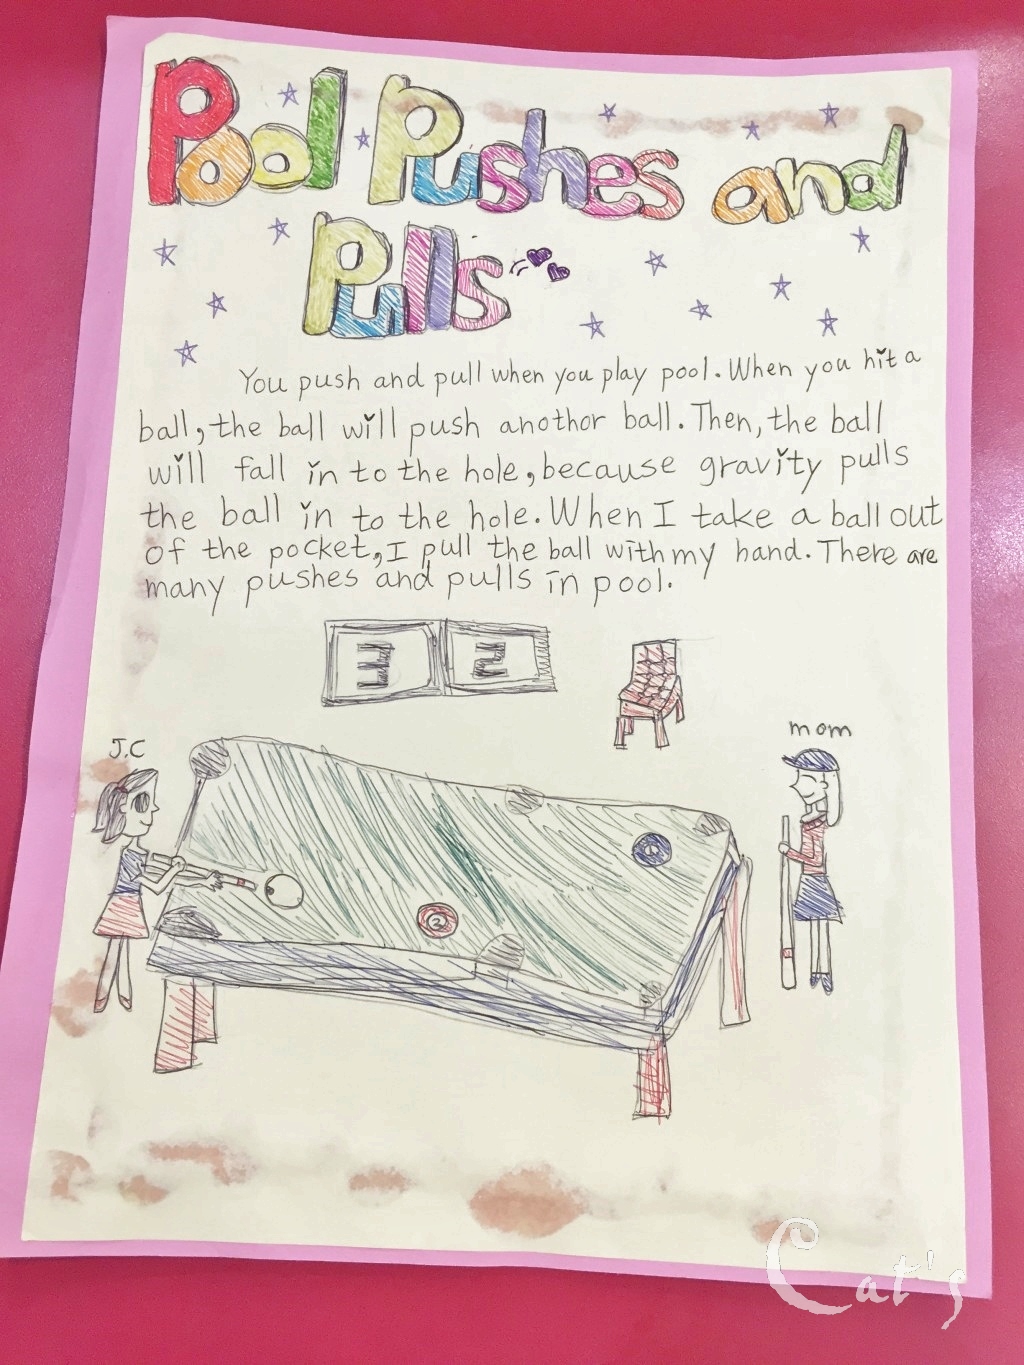 Pool Pushes and
Pulls
You push and pull when you play pool. When you hit a
ball, the ball will push anothor ball. Then, the ball
will fall in to the hole, because gravity pulls
the ball in to the hole. When I take a ball out
of the pocket, I pull the ball with my hand. There are
many pushes and pulls in pool.
3 2
J.C
mom
1
2
Cat's